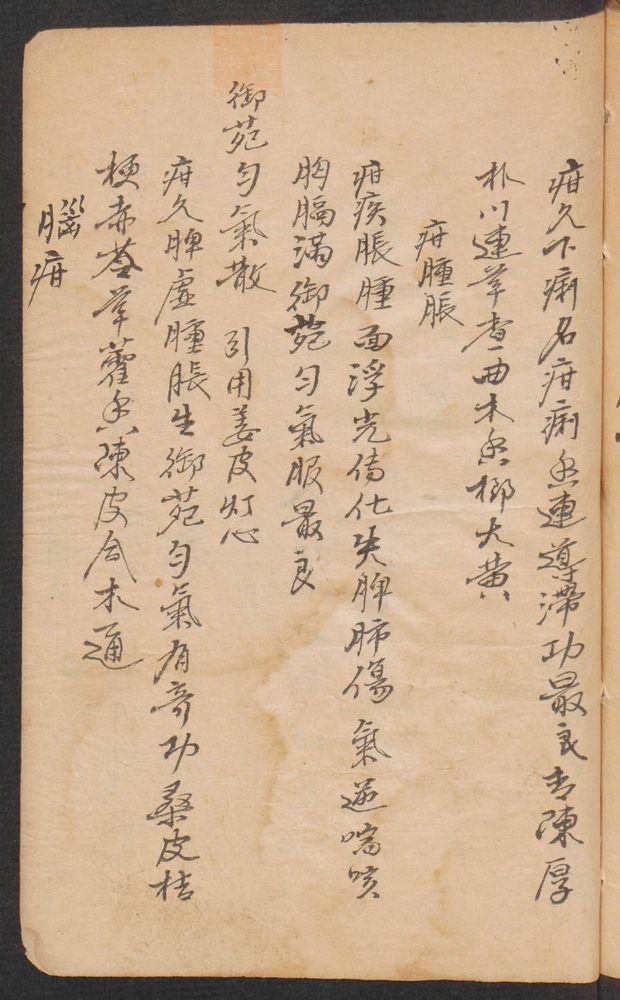 疳久下痢名疳痢香連導滯功最良青陳厚
朴川連草查曲木香榔大黄
疳腫脹
疳疾脹腫面浮光傳化失脾肺傷氣逆喘咳
胸膈滿御苑勻氣服最良
御苑勻氣散 引用姜皮灯心
疳久脾虛腫脹生御苑勻氣有奇功桑皮桔
梗赤苓草藿香陳皮合木通
腦疳